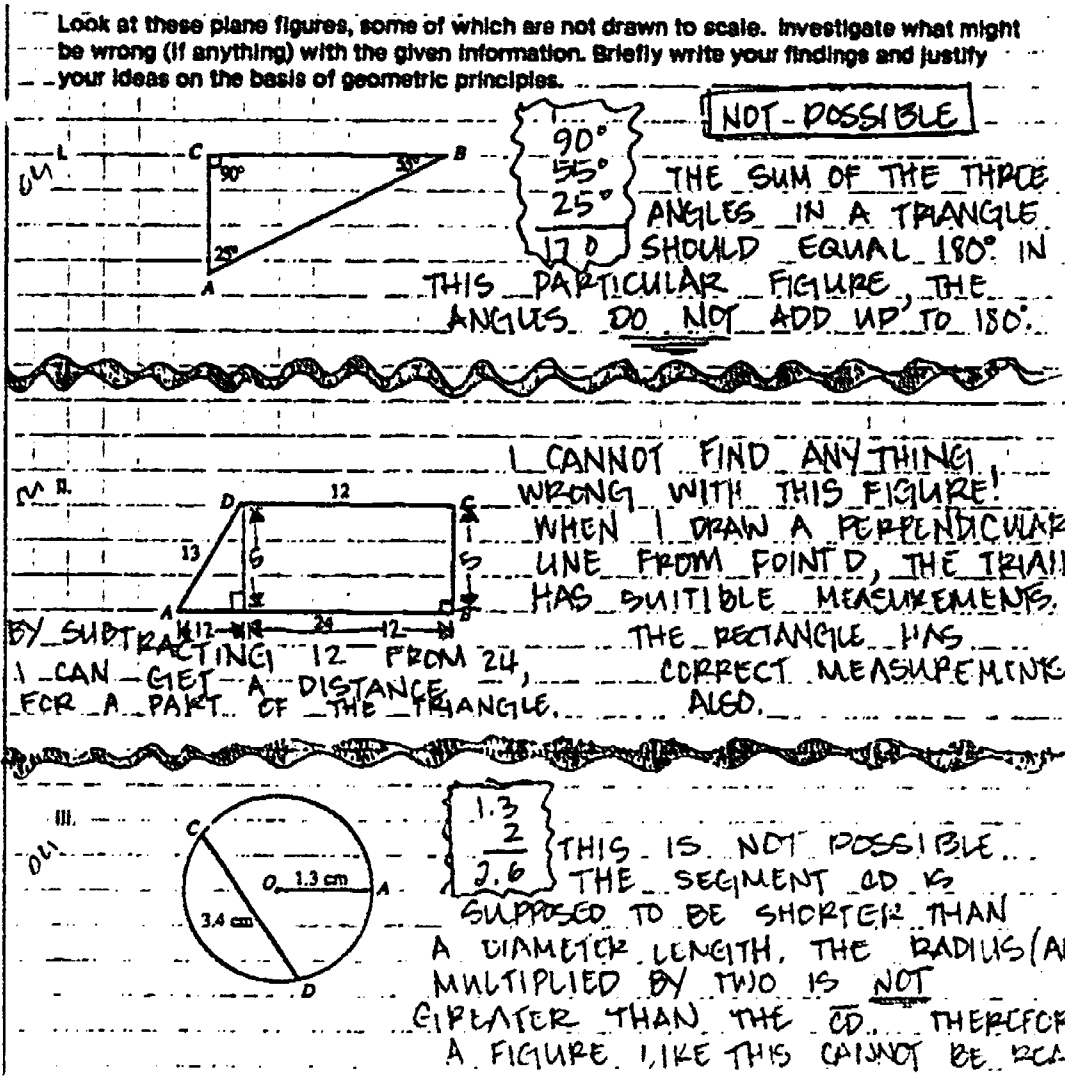 Look at these plane figures, some of which are not drawn to scale. Investigate what might
be wrong (if anything) with the given information. Briefly write your findings and justify
your ideas on the basis of geometric principles.
NOT POSSIBLE
I.
C
B
90°
55°
25°
A
90°
55°
25°
170
THE SUM OF THE THREE
ANGLES IN A TRIANGLE
SHOULD EQUAL 180°. IN
THIS PARTICULAR FIGURE, THE
ANGLES DO NOT ADD UP TO 180°.
II.
D
12
C
13
5
5
A
B
12
24
12
I CANNOT FIND ANYTHING
WRONG WITH THIS FIGURE!
WHEN I DRAW A PERPENDICULAR
LINE FROM POINT D, THE
HAS SUITIBLE MEASUREMENTS.
THE RECTANGLE HAS
CORRECT MEASUREMINTS
ALSO.
BY SUBTRACTING 12 FROM 24,
I CAN GET A DISTANCE
FOR A PART OF THE TRIANGLE.
III.
C
O
1.3 cm
A
3.4 cm
D
1.3
2
2.6
THIS IS NOT POSSIBLE.
THE SEGMENT CD IS
SUPPOSED TO BE SHORTER THAN
A DIAMETER LENGTH. THE RADIUS
MULTIPLIED BY TWO IS NOT
GREATER THAN THE CD.
A FIGURE LIKE THIS CANNOT BE